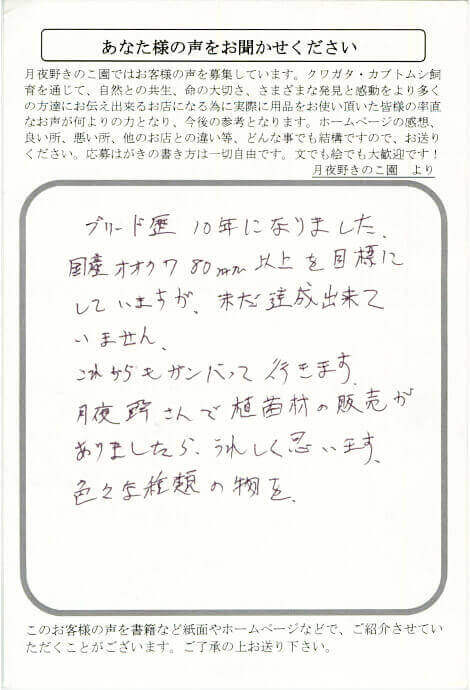 あなた様の声をお聞かせください
月夜野きのこ園ではお客様の声を募集しています。クワガタ・カブトムシ飼
育を通じて、自然との共生、命の大切さ、さまざまな発見と感動をより多く
の方達にお伝え出来るお店になる為に実際に用品をお使い頂いた皆様の率直
なお声が何よりの力となり、今後の参考となります。ホームページの感想、
良い所、悪い所、他のお店との違い等、どんな事でも結構ですので、お送り
ください。応募はがきの書き方は一切自由です。文でも絵でも大歓迎です！
月夜野きのこ園 より
ブリード歴 10年になりました、
国産オオクワ 80mm以上を目標に
していますが、未だ達成出来て
いません、
これからもガンバって行きます、
月夜野さんで植菌材の販売が
ありましたら、うれしく思います、
色々な種類の物を、
このお客様の声を書籍など紙面やホームページなどで、ご紹介させてい
ただくことがございます。ご了承の上お送り下さい。